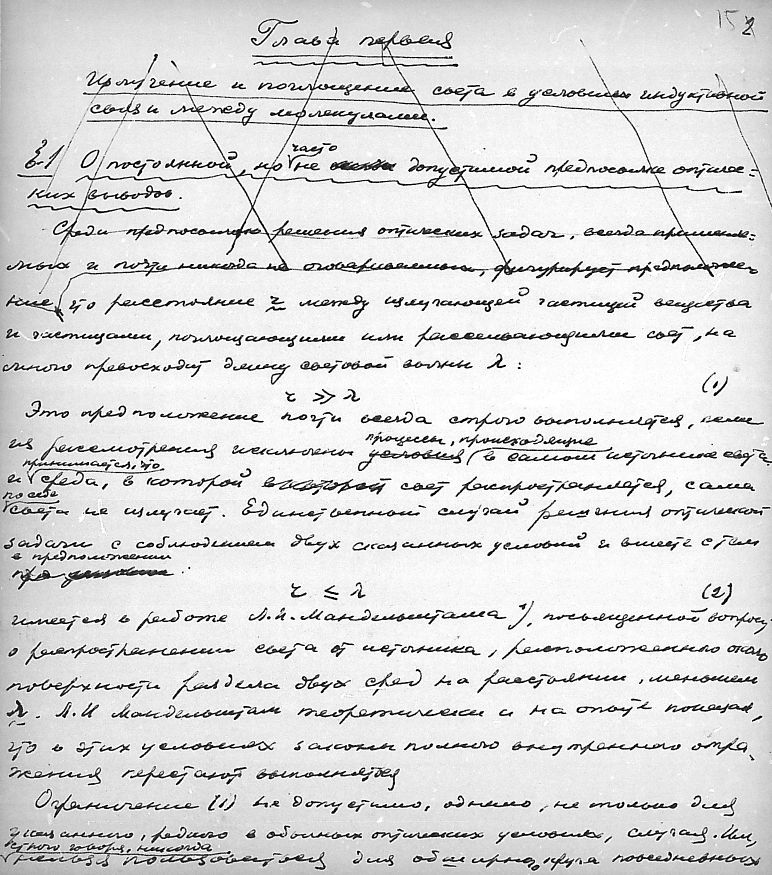 15 2
Глава первая
Излучение и поглощение света в условиях индуктивной
связи между молекулами.
§1 О постоянной, но часто не допустимой предпосылке оптичес=
ких выводов.
Среди предпосылок решения оптических задач, всегда применяе=
мых и почти никогда не оговариваемых, фигурирует предположе=
ние, что расстояние r между излучающей частицей вещества
и частицами, поглощающими или рассеивающими свет, на
много превосходит длину световой волны λ:
r ≫ λ (1)
Это предположение почти всегда строго выполняется, если
из рассмотрения исключены процессы, происходящие в самом источнике света
и принимается, что среда, в которой свет распространяется, сама
по себе света не излучает. Единственный случай решения оптической
задачи с соблюдением двух сказанных условий и вместе с тем
в предположении
r ≤ λ (2)
имеется в работе Л.И. Мандельштама 1), посвященной вопросу
о распространении света от источника, расположенного около
поверхности раздела двух сред на расстоянии, меньшем
λ. Л.И Мандельштам теоретически и на опыте показал,
что в этих условиях законы полного внутреннего отра-
жения перестают выполняться
Ограничение (1) не допустимо, однако, не только для
указанного, редкого в обычных оптических условиях, случая. Им,
строго говоря, никогда нельзя пользоваться для обширного круга повседневных